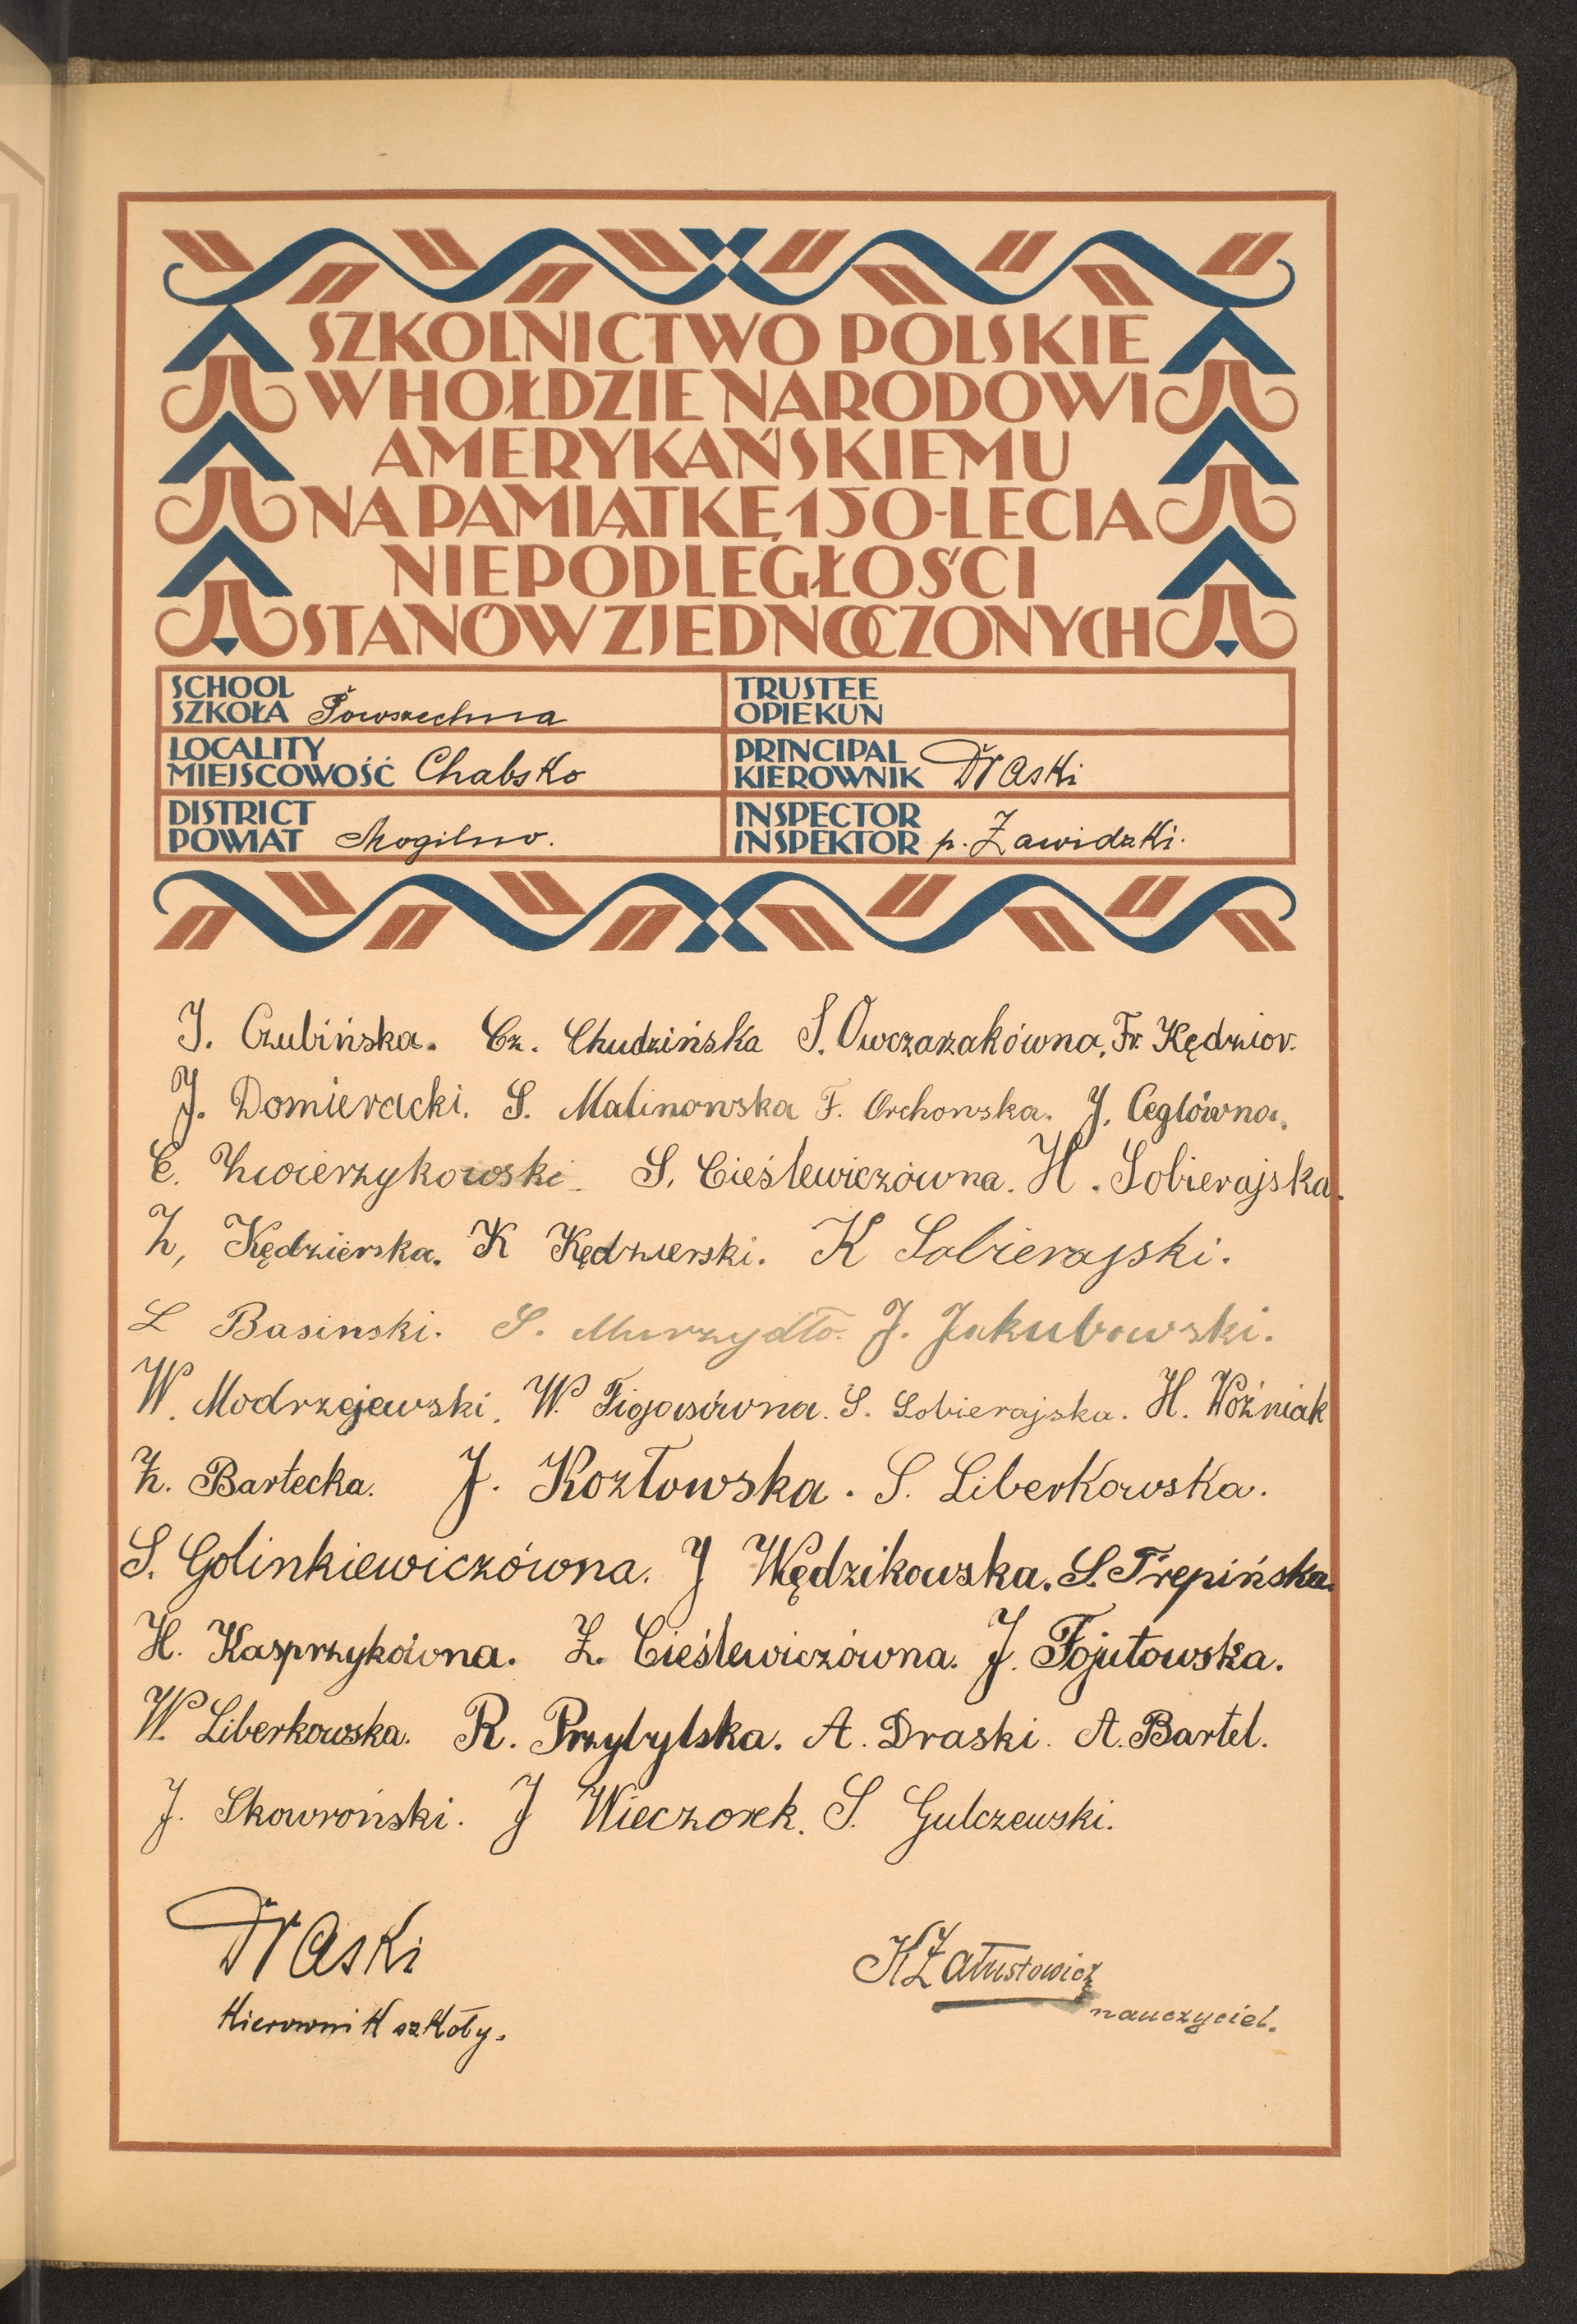 SZKOLNICTWO POLSKIE
W HOŁDZIE NARODOWI
AMERYKAŃSKIEMU
NA PAMIĄTKĘ 150-LECIA
NIEPODLEGŁOŚCI
STANÓW ZJEDNOCZONYCH
SCHOOL
SZKOŁA Powszechna
TRUSTEE
OPIEKUN
LOCALITY
MIEJSCOWOŚĆ Chabsko
PRINCIPAL
KIEROWNIK Draski
DISTRICT
POWIAT Mogilno.
INSPECTOR
INSPEKTOR p. Zawidzki.
J. Czubińska. Cz. Chudzińska S. Owczarzakówna, Fr. Kędzior.
J. Domieracki. S. Malinowska F. Orchowska. J. Ceglówna.
C. Zwierzykowski S. Cieślewiczówna. H. Sobierajska.
Z, Kędzierska. K Kędzierski. K Sobierajski.
L Basinski. S. Murzydło. J. Jakubowski.
W. Modrzejewski. W. Figasówna. S. Sobierajska. H. Woźniak
Z. Bartecka. J. Kozłowska. S. Liberkowska.
S. Golinkiewiczówna. J Wędzikowska. S. Trepińska.
H. Kasprzykówna. Z. Cieślewiczówna. J. Fojutowska.
W. Liberkowska. R. Przybylska. A. Draski. A. Bartel.
J. Skowroński. J Wieczorek. S. Gulczewski.
Draski
Kierownik szkoły.
KZałustowicz
nauczyciel.